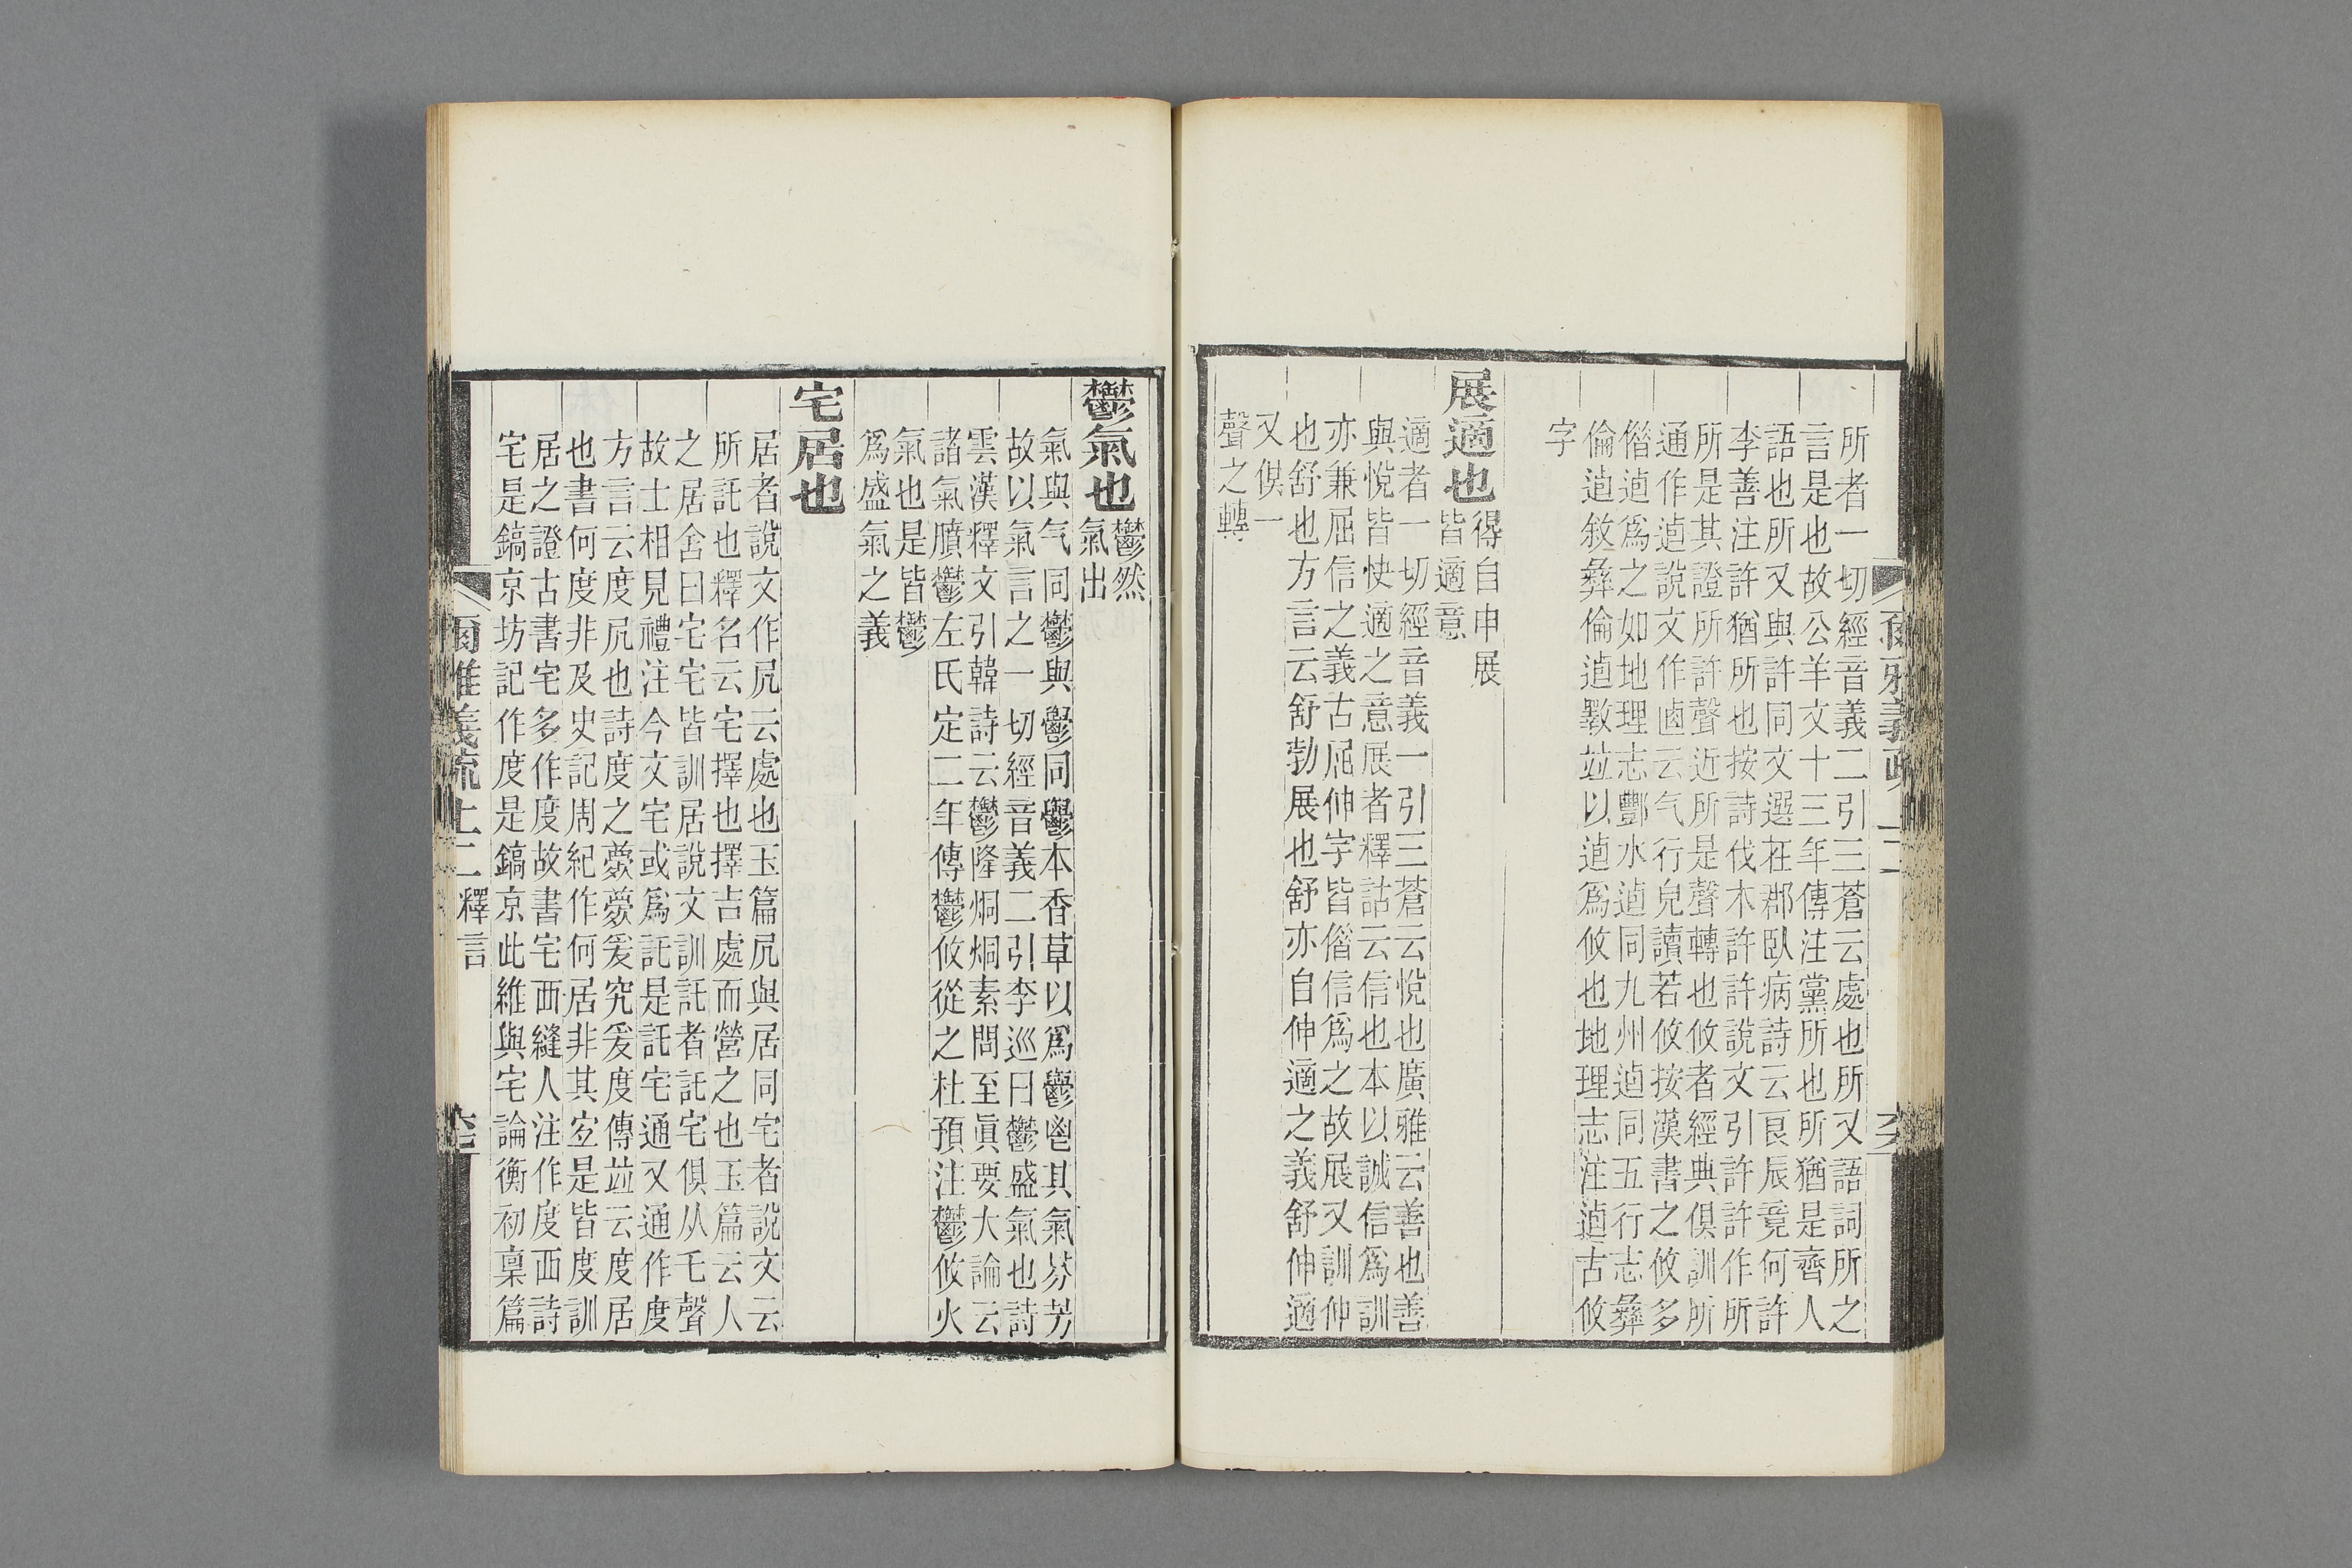 所者一切經音義二引三蒼云處也所又語詞所之
言是也故公羊文十三年傳注黨所也所猶是齊人
語也所又與許同文選在郡臥病詩云良辰竟何許
李善注許猶所也按詩伐木許許說文引許許作所
所是其證所許聲近所是聲轉也攸者經典俱訓所
通作逌說文作卤云气行皃讀若攸按漢書之攸多
偺逌爲之如地理志酆水逌同九州逌同五行志彝
倫逌敘彝倫逌斁竝以逌爲攸也地理志注逌古攸
字
展適也
得自申展
皆適意
適者一切經音義一引三蒼云悅也廣雅云善也善
與悅皆快適之意展者釋詁云信也本以誠信爲訓
亦兼屈信之義古屈伸字皆偺信爲之故展又訓伸
也舒也方言云舒勃展也舒亦自伸適之義舒伸適
又俱一
聲之轉
鬱氣也
鬱然
氣出
氣與气同鬱與鬱同鬱本香草以爲鬱鬯其氣芬芳
故以氣言之一切經音義二引李巡曰鬱盛氣也詩
雲漢釋文引韓詩云鬱隆烔烔素問至眞要大論云
諸氣膹鬱左氏定二年傳鬱攸從之杜預注鬱攸火
氣也是皆鬱
爲盛氣之義
宅居也
居者說文作凥云處也玉篇凥與居同宅者說文云
所託也釋名云宅擇也擇吉處而營之也玉篇云人
之居舍曰宅宅皆訓居說文訓託者託宅俱从乇聲
故士相見禮注今文宅或爲託是託宅通又通作度
方言云度凥也詩度之薨薨爰究爰度傳竝云度居
也書何度非及史記周紀作何居非其宐是皆度訓
居之證古書宅多作度故書宅西縫人注作度西詩
宅是鎬京坊記作度是鎬京此維與宅論衡初稟篇
爾雅義疏上二 釋言